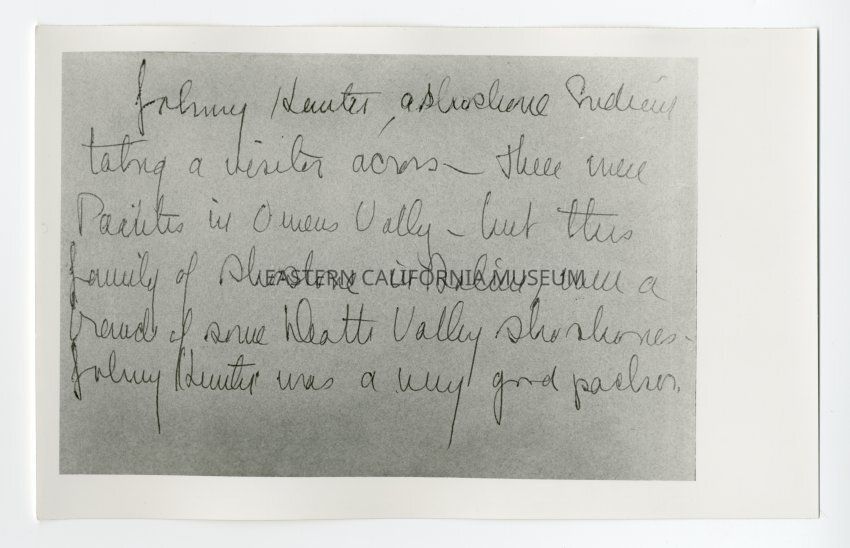 Johnny Hunter, a Shoshone Indian
taking a visitor across — there were
Paiutes in Owens Vally — but this
family of Shoshone Indians were a
branch of some Death Valley Shoshones.
Johnny Hunter was a very good packer.
EASTERN CALIFORNIA MUSEUM